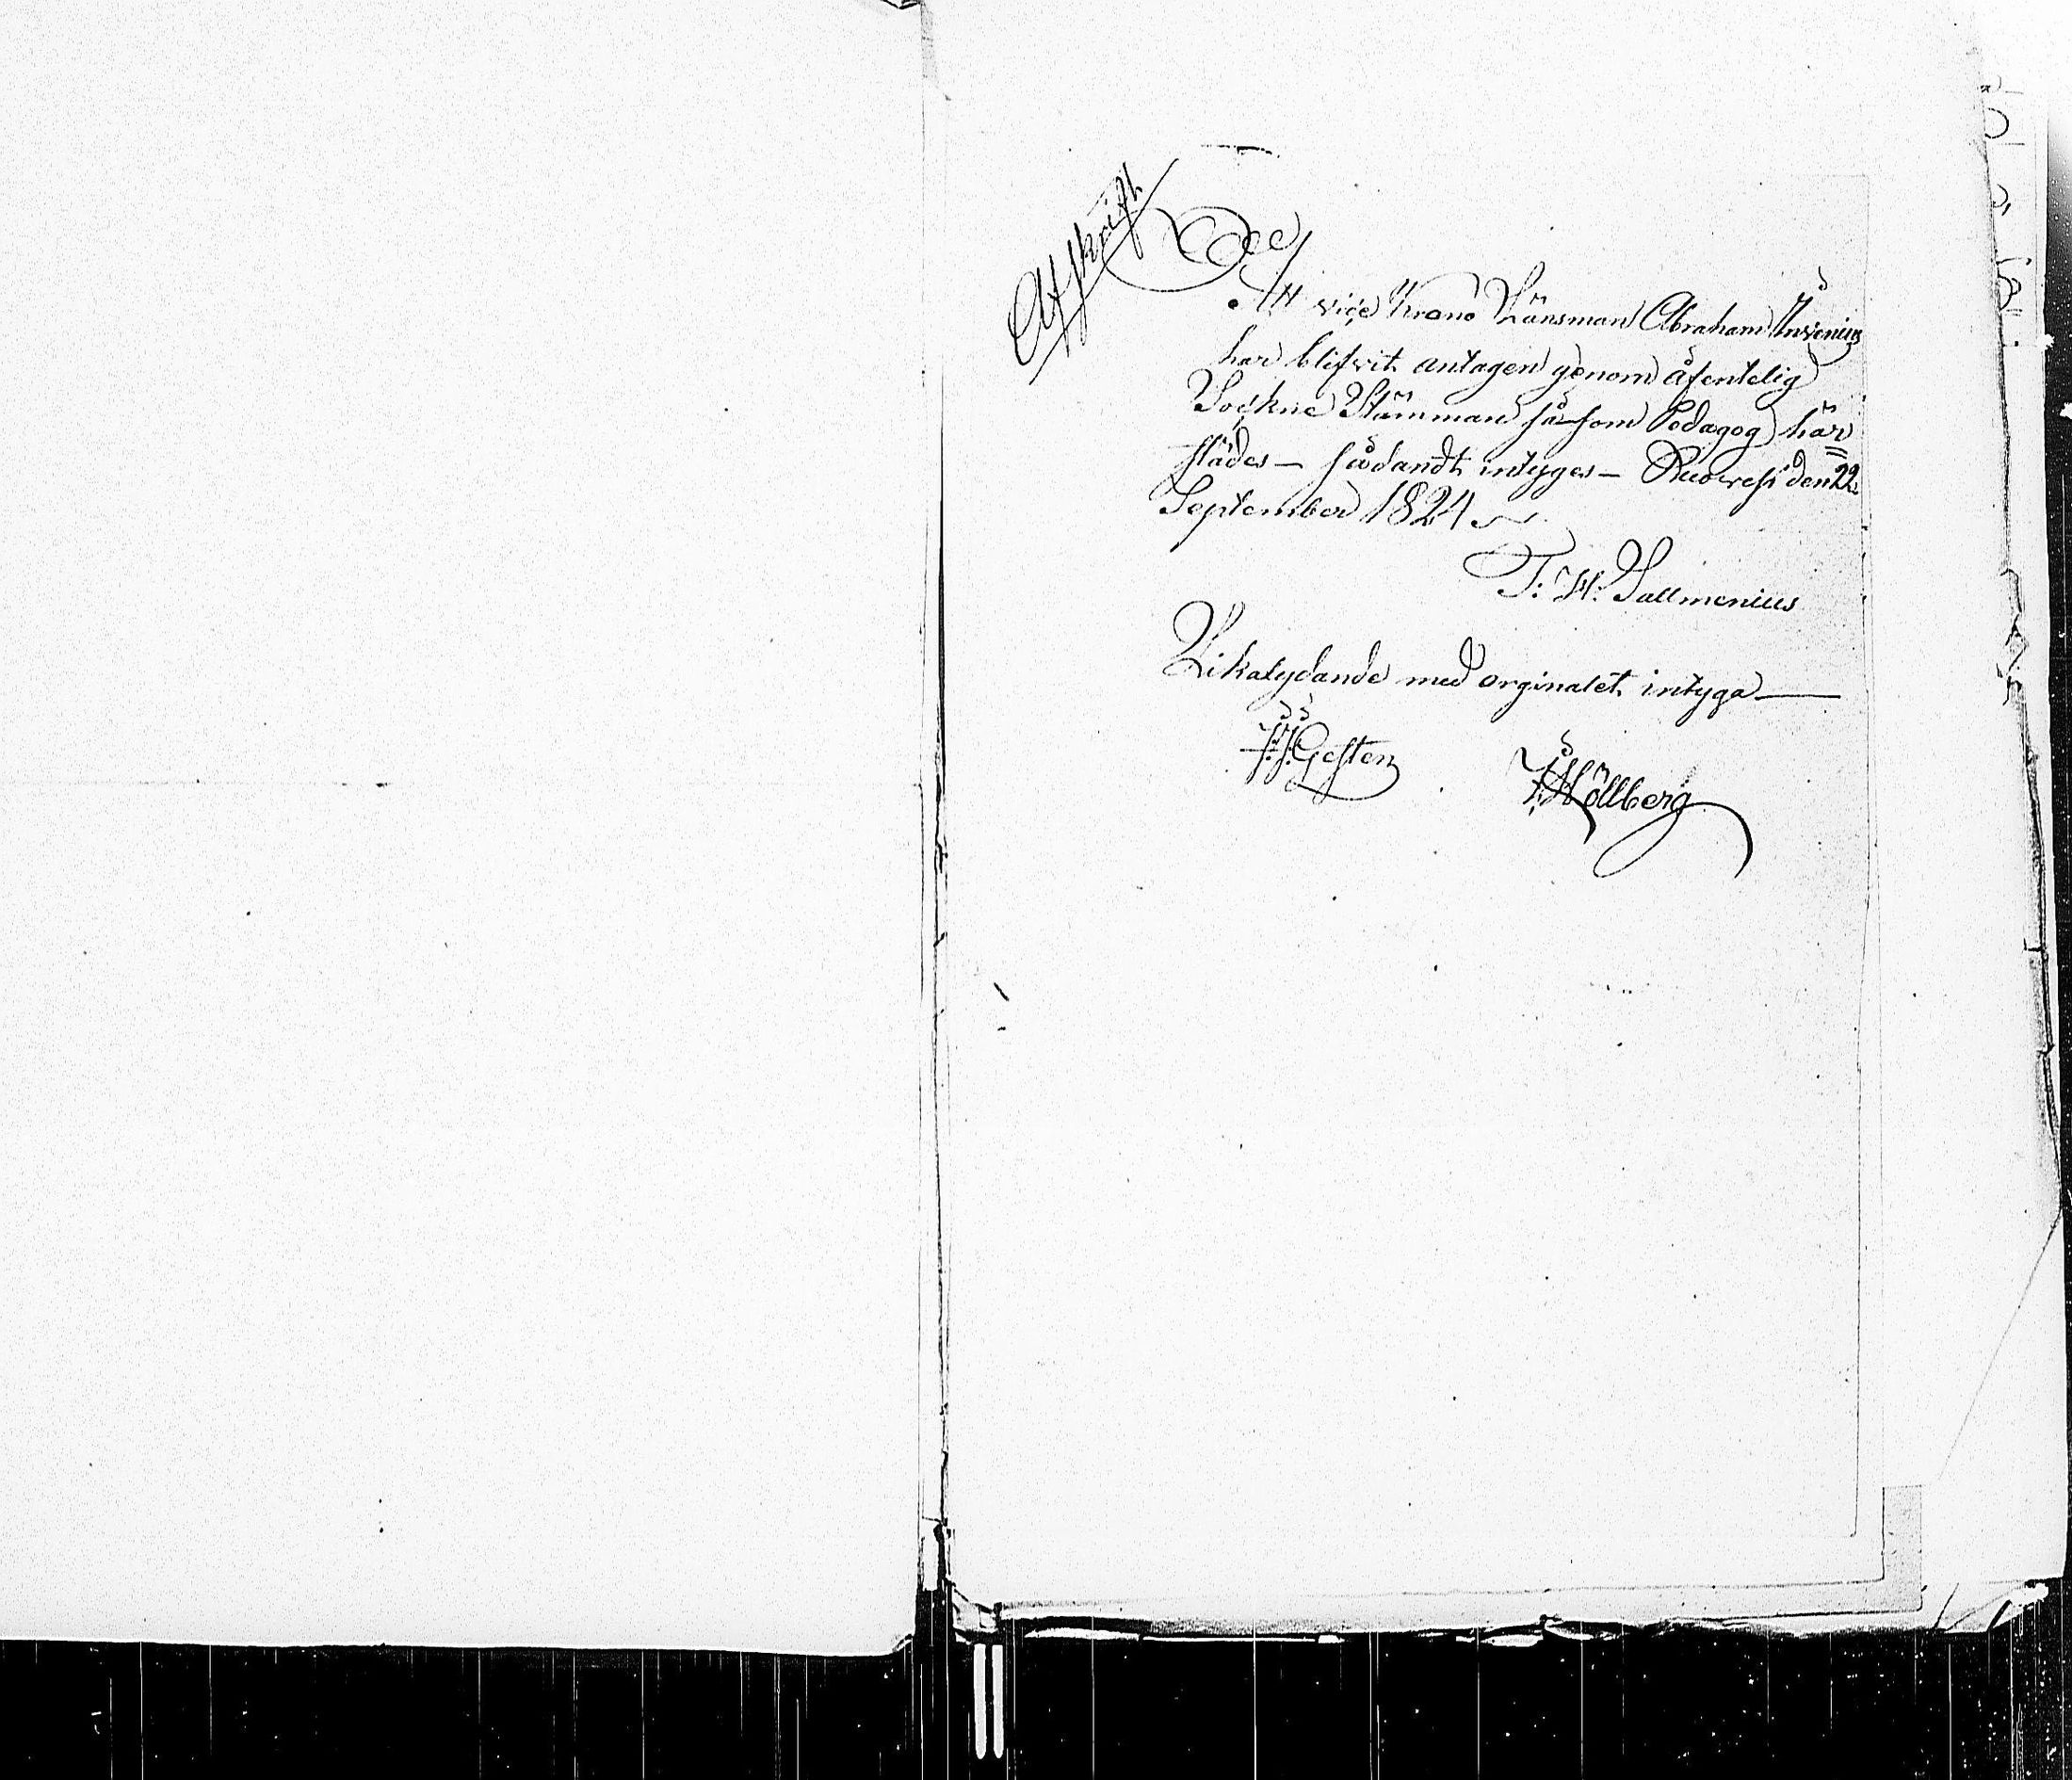 Afskrift
Att vice Krono Länsman Abraham
har blifvit antagen genom åfentelig
Sockne Stämman så som Pedagog här
städes — sådandt intyges — Ruovesi den 22
September 1824
T. W. Sallmenius
Likalydande med orginalet intyga
J. J. Gesten